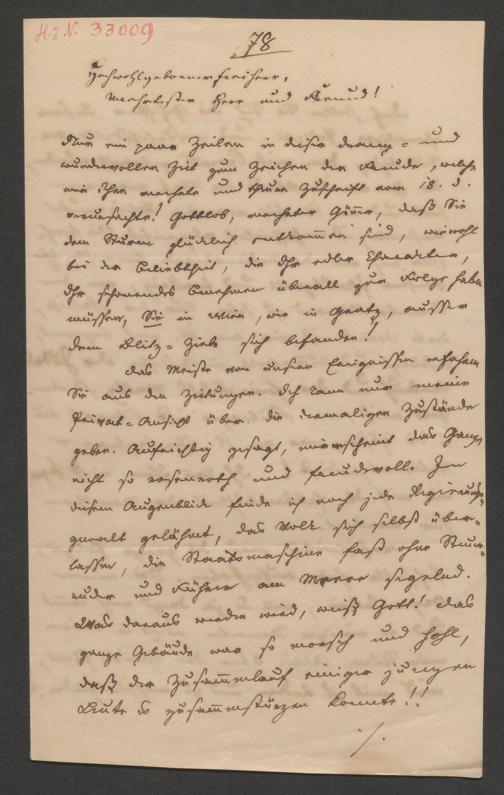 H.I.N. 33009
78
Hochwohlgeborner Freiherr,
Verehrtester Herr und Freund!
Nur ein paar Zeilen in dieser drang- und
wundervollen Zeit zum Zeichen der Freude, welche
mir Ihre verehrte und theure Zuschrift vom 18. d.
verursachte! Gottlob, verehrter Gönner, daß Sie
dem Sturm glücklich entkommen sind, wiewohl
bei der Beliebtheit, die Ihr edler Charakter,
Ihr schonendes Benehmen überall zur Folge haben
müssen, Sie in Wien, wie in Gratz, ausser
dem Blitz-Ziele sich befanden!
Das Meiste von unsern Ereignissen erfahren
Sie aus den Zeitungen. Ich kann nur meine
Privat-Ansicht über die dermaligen Zustände
geben. Aufrichtig gesagt, mir scheint das Ganze
nicht so rosenroth und freudevoll. In
diesem Augenblick finde ich noch jede Regierungs-
gewalt gelähmt, das Volk sich selbst über-
lassen, die Staatsmaschine fast ohne Steuer-
ruder und Führer am Meere segelnd.
Was daraus werden wird, weiß Gott! Das
ganze Gebäude war so morsch und hohl,
daß der Zusammenlauf einiger jungen
Leute es zusammenstürzen konnte!!
./.